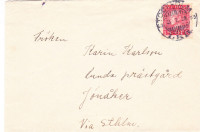 Fröken
Karin Karlsson
Lunda prästgård
Jönåker
Via Sthlm.